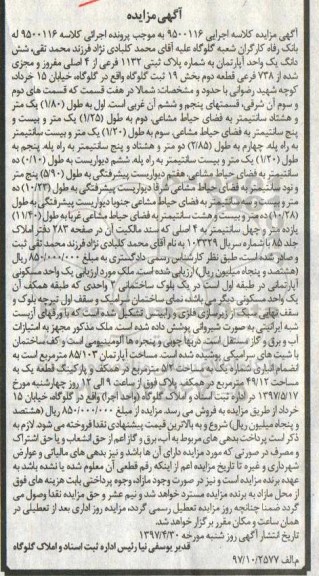 آگهی مزایده
آگهی مزایده کلاسه اجرایی ۹۵۰۰۱۱۶ به موجب پرونده اجرائی کلاسه ۹۵۰۰۱۱۶ له
بانک رفاه کارگران شعبه گلوگاه علیه آقای محمد کلبادی نژاد فرزند محمد تقی، شش
دانگ یک واحد آپارتمان به شماره پلاک ثبتی ۱۱۳۲ فرعی از ۴ اصلی مفروز و مجزی
شده از ۷۳۸ فرعی قطعه دوم بخش ۱۹ ثبت گلوگاه واقع در گلوگاه، خیابان ۱۵ خرداد
کوچه شهید رضوانی با حدود و مشخصات: شمالا در هفت قسمت که قسمت های دوم
و سوم آن شرقی، قسمتهای پنجم و ششم آن غربی است. اول به طول (۱/۸۰) یک متر
و هشتاد سانتیمتر به فضای حیاط مشاعی. دوم به طول (۱/۲۵) یک متر و بیست و
پنج سانتیمتر به فضای حیاط مشاعی. سوم به طول (۱/۲۰) یک متر و بیست سانتیمتر
به راه پله. چهارم به طول (۲/۸۵) دو متر و هشتاد و پنج سانتیمتر به راه پله. پنجم به
طول (۱/۲۰) یک متر و بیست سانتیمتر به راه پله. ششم دیواریست به طول (۰/۱۰) ده
سانتیمتر به فضای حیاط مشاعی. هفتم دیواریست پیشرفتگی به طول (۵/۹۰) پنج متر
و نود سانتیمتر به فضای حیاط مشاعی شرقا دیواریست پیشرفتگی به طول (۱۰/۲۳) ده
متر و بیست و سه سانتیمتر به فضای حیاط مشاعی جنوبا دیواریست پیشرفتگی به طول
(۱۰/۲۸) ده متر و بیست و هشت سانتیمتر به فضای حیاط مشاعی غربا به طول (۱۱/۴۰)
یازده متر و چهل سانتیمتر به ۴ اصلی که سند مالکیت آن در صفحه ۲۸۳ دفتر املاک
جلد ۸۵ با شماره سریال ۱۰۳۳۲۹ به نام آقای محمد کلبادی نژاد فرزند محمد تقی ثبت
و صادر شده است، طبق نظر کارشناس رسمی دادگستری به مبلغ ۸۵۰/۰۰۰/۰۰۰ ریال
(هشتصد و پنجاه میلیون ریال) ارزیابی شده است. ملک مورد ارزیابی یک واحد مسکونی
آپارتمانی در طبقه اول است در یک بلوک ساختمانی ۲ واحدی که طبقه همکف آن
یک واحد مسکونی دیگر می باشد، نمای ساختمان سرامیک و سقف اول تیرچه بلوک و
سقف نهایی سبک از زیرسازی فلزی و رابیتس تشکیل شده است که با ورقهای آزبست
شبه ایرانیتی به صورت شیروانی پوشش داده شده است. ملک مذکور مجهز به امتیازات
آب و برق و گاز مستقل است. دربها چوبی و پنجره ها آلومینیومی است و کف ساختمان
با شیت های سرامیکی پوشیده شده است. مساحت آپارتمان ۸۵/۱۰۳ مترمربع است به
انضمام انباری شماره یک به مساحت ۵/۲ مترمربع در همکف و پارکینگ قطعه یک به
مساحت ۴۹/۱۲ مترمربع در همکف. پلاک فوق از ساعت ۹ الی ۱۲ روز چهارشنبه مورخ
۱۳۹۷/۵/۱۷ در اداره ثبت اسناد و املاک گلوگاه (واحد اجرا) واقع در گلوگاه، خیابان ۱۵
خرداد از طریق مزایده به فروش می رسد. مزایده از مبلغ ۸۵۰/۰۰۰/۰۰۰ ریال (هشتصد
و پنجاه میلیون ریال) شروع و به بالاترین قیمت پیشنهادی نقدا فروخته می شود. لازم به
ذکر است پرداخت بدهی های مربوط به آب، برق و گاز اعم از حق انشعاب و یا حق اشتراک
و مصرف در صورتی که مورد مزایده دارای آن ها باشد و نیز بدهی های مالیاتی و عوارض
شهرداری و غیره تا تاریخ مزایده اعم از اینکه رقم قطعی آن معلوم شده یا نشده باشد به
عهده برنده مزایده است و نیز در صورت وجود مازاد، وجوه پرداختی بابت هزینه های فوق
از محل مازاد به برنده مزایده مسترد خواهد شد و نیم عشر و حق مزایده نقدا وصول می
گردد. ضمنا چنانچه روز مزایده تعطیل رسمی گردد، مزایده روز اداری بعد از تعطیلی در
همان ساعت و مکان مقرر برگزار خواهد شد.
تاریخ انتشار آگهی روز شنبه مورخه ۱۳۹۷/۴/۳۰
قدیر یوسفی نیا رئیس اداره ثبت اسناد و املاک گلوگاه
م.الف ۹۷/۱۰/۲۵۷۷